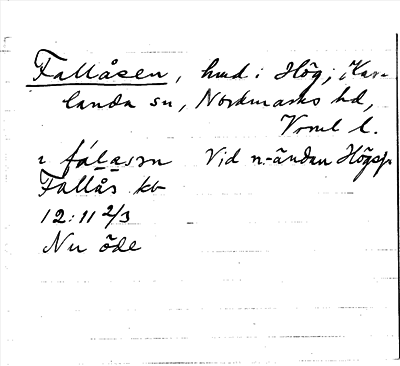 Fallåsen, hmd i Hög, Kar-
landa sn, Nordmarks hd,
Vrml l.
i fålåsən Vid n.-ändan Högsj.
Fallås kb
12:11 2/3
Nu öde